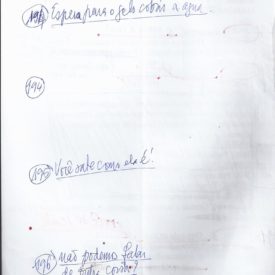 193) Espera para o gelo cobrir a água.
194
195) Você sabe como ela é!
196) não podemos falar
de outra coisa?